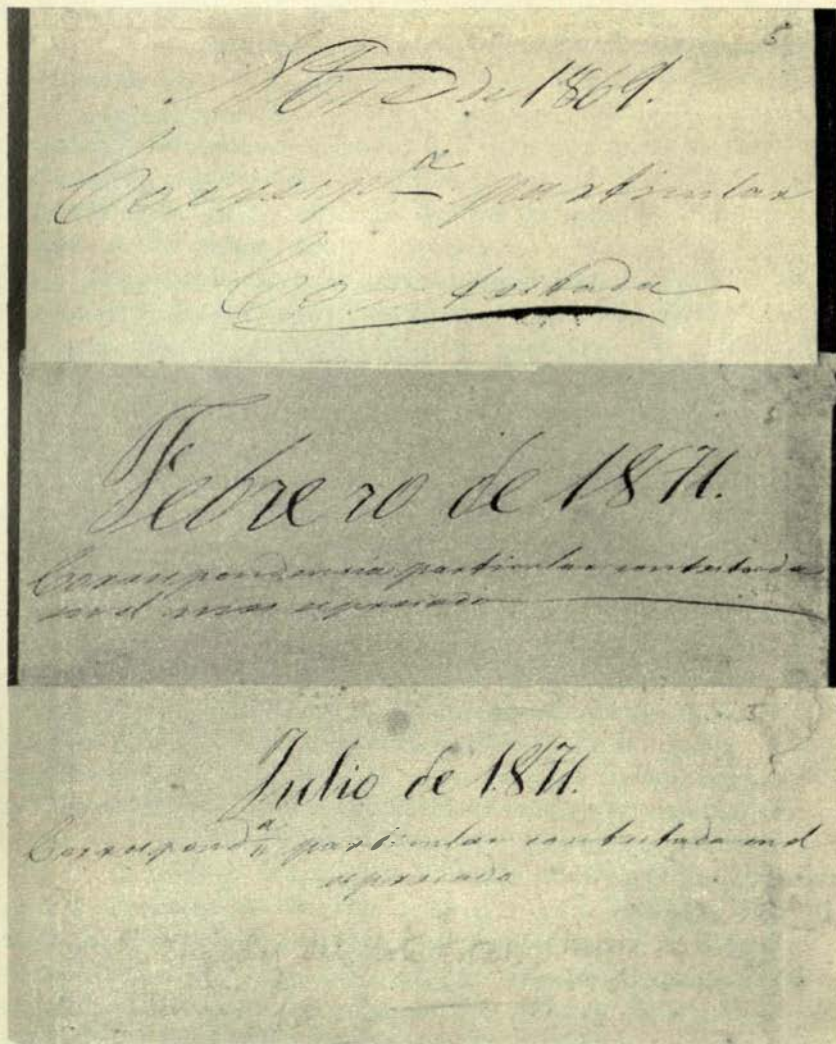 5
Nbre de 1869.
Corresp.a particular
Contestada
5
Febrero de 1871.
Correspondencia particular contestada
en el mes espresado
5
Julio de 1871.
Correspond.a particular contestada en el
espresado